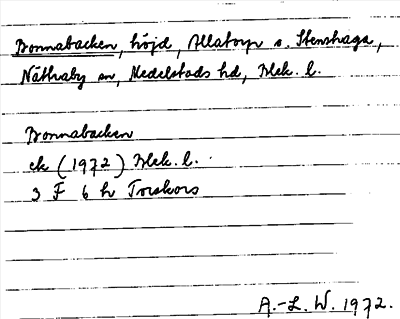 Bonnabacken, höjd, Allatorp o. Stenshaga,
Nättraby sn, Medelstads hd, Blek. l.
Bonnabacken
ek (1972) Blek. l.
3 F 6 h Torskors
A.-L. W. 1972.